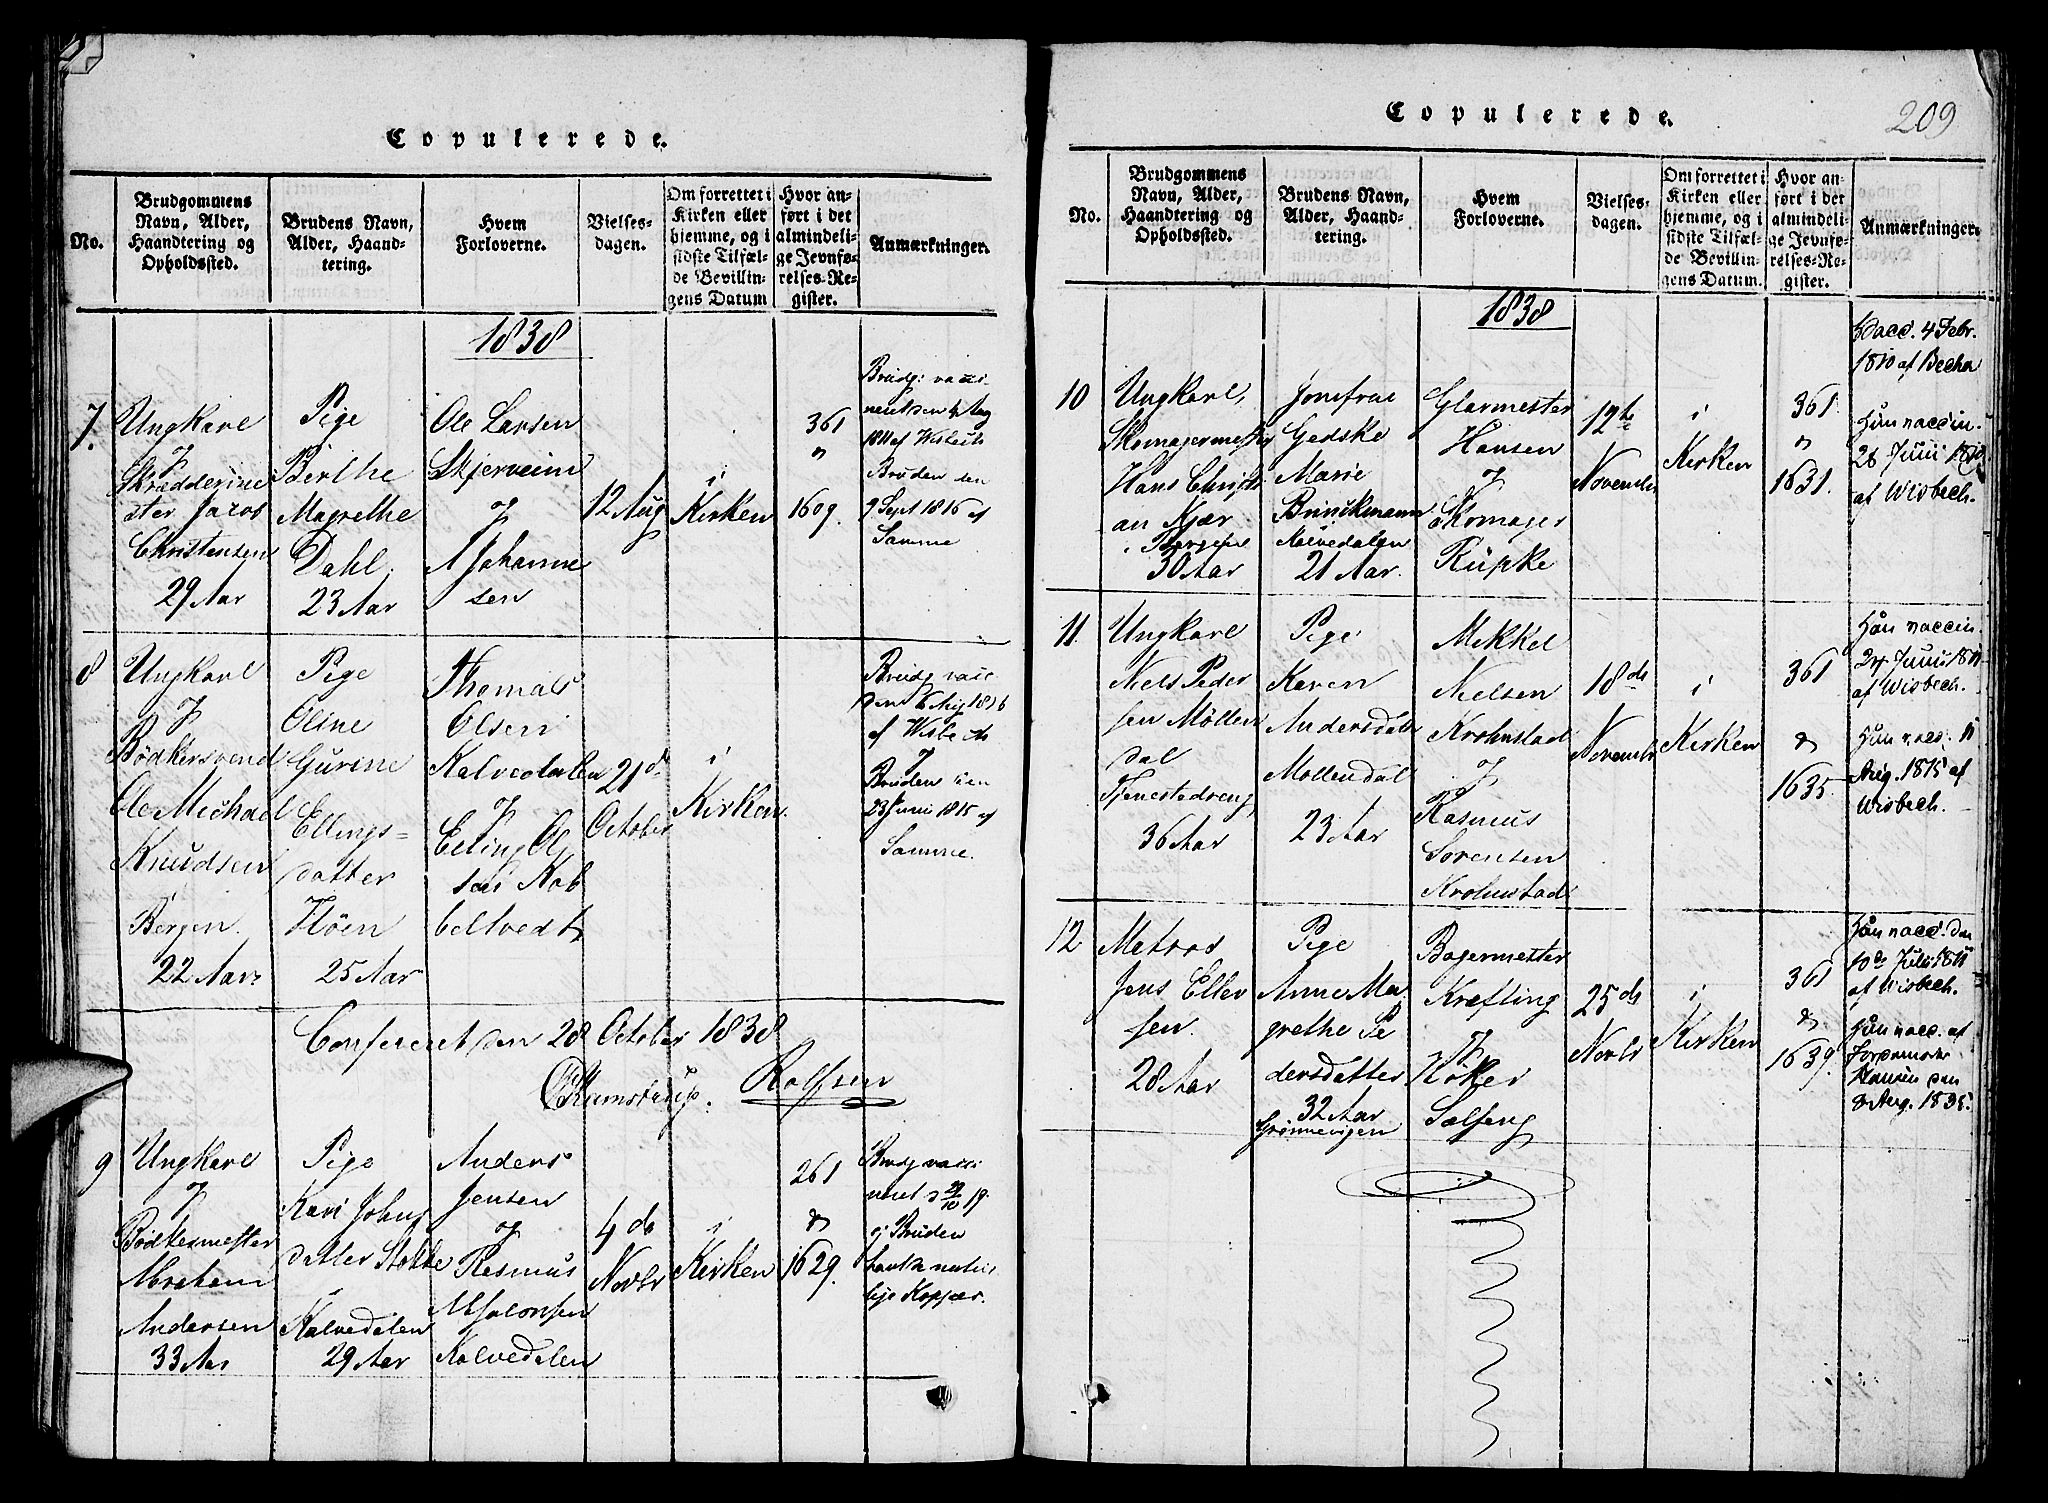 Copulerede.
No.
Brudgommens
Navn, Alder,
Haandtering og
Opholdssted.
Brudens Navn,
Alder, Haand-
tering.
Hvem
Forloverne.
Vielses-
dagen.
Om forrettet i
Kirken eller
hjemme, og i
sidste Tilfæl-
de Bevillin-
gens Datum
Hvor an-
ført i det
almindeli-
ge Jevnfø-
relses-Re-
gister.
Anmærkninger.
1838
7.
Ungkarl
og
Skrædderme
ster Jacob
Christensen
29 Aar
Pige
Birthe
Magrethe
Dahl
23 Aar
Ole Larsen
Skjerveim
og
A Johanne
sen
12 Aug
i
Kirken
361
"
1609.
Brudg: vacci
neret den 4 Aug
1811 af Wisbech
Bruden den
9 Sept 1816 af
Samme
8
Ungkarl
og
Bødkersvend
Ole Michael
Knudsen
Bergen.
22 Aar
Pige
Oline
Gurine
Ellings-
datter
Fløen
25 Aar
Thomas
Olsen
Kalvedalen
og
Elling Ol
sen Kob
beltvedt
21de
October
i
Kirken.
Brudg vacc
den 6 Aug 1816
af Wisbech
og
Bruden den
23 Juni 1815 af
Samme.
Confereret den 28 October 1838
Ramstrup. Rolfsen
9
Ungkarl
og
Bødkermester
Abraham
Andersen
33 Aar
Pige
Kari Johns
datter Stokke
Kalvedalen
29 Aar
Anders
Jensen
og
Rasmus
Absalonsen
Kalvedalen
4 de
Novbr
i
Kirken
261
&
1629.
Brudg vacci
neret d 29/10 19.
og Bruden
havde natur
lige Kopper.
Copulerede.
209
No.
Brudgommens
Navn, Alder,
Haandtering og
Opholdssted.
Brudens Navn,
Alder, Haand-
tering.
Hvem
Forloverne.
Vielses-
dagen.
Om forrettet i
Kirken eller
hjemme, og i
sidste Tilfæl-
de Bevillin-
gens Datum.
Hvor an-
ført i det
almindeli-
ge Jevnfø-
relses-Re-
gister.
Anmærkninger.
1838
10
Ungkarl,
Skomagermester
Hans Christi
an Kjær
i Bergen
30 Aar
Jomfrue
Gedske
Marie
Brinckmann
Kalvedalen
21 Aar.
Glarmester
Hansen
og
Skomager
Rüpke
12te
November
i
Kirken
361
"
1631.
Vacc. 4 Febr.
1810 af Becher
Hun vaccin.
28 Juni
af Wisbech.
11.
Ungkarl
Niels Peder
sen Møllen
dal
Tjenestedreng
36 Aar
Pige
Karen
Andersdatter
Møllendal
23 Aar
Mikkel
Nielsen
Krohnstad
og
Rasmus
Sørensen
Krohnstad
18 de
Novembr
i
Kirken
361
&
1635
Han vaccin.
24 Juni 1811
af Wisbech.
Hun vacc. 11
Aug. 1815 af
Wisbech.
12
Matros
Jens Eller
sen.
28 Aar
Pige
Anne Ma
grethe Pe
dersdatter
32 Aar
Grønnevigen
Bagermester
Krefting
og
Køker
Salseng
25 de
Novbr
i
Kirken
361
&
1639.
Han vacc. den
10de Juli 1811
af Wisbech.
Hun vacc. af
Jordemoder
Hansen den
8 Aug. 1835.